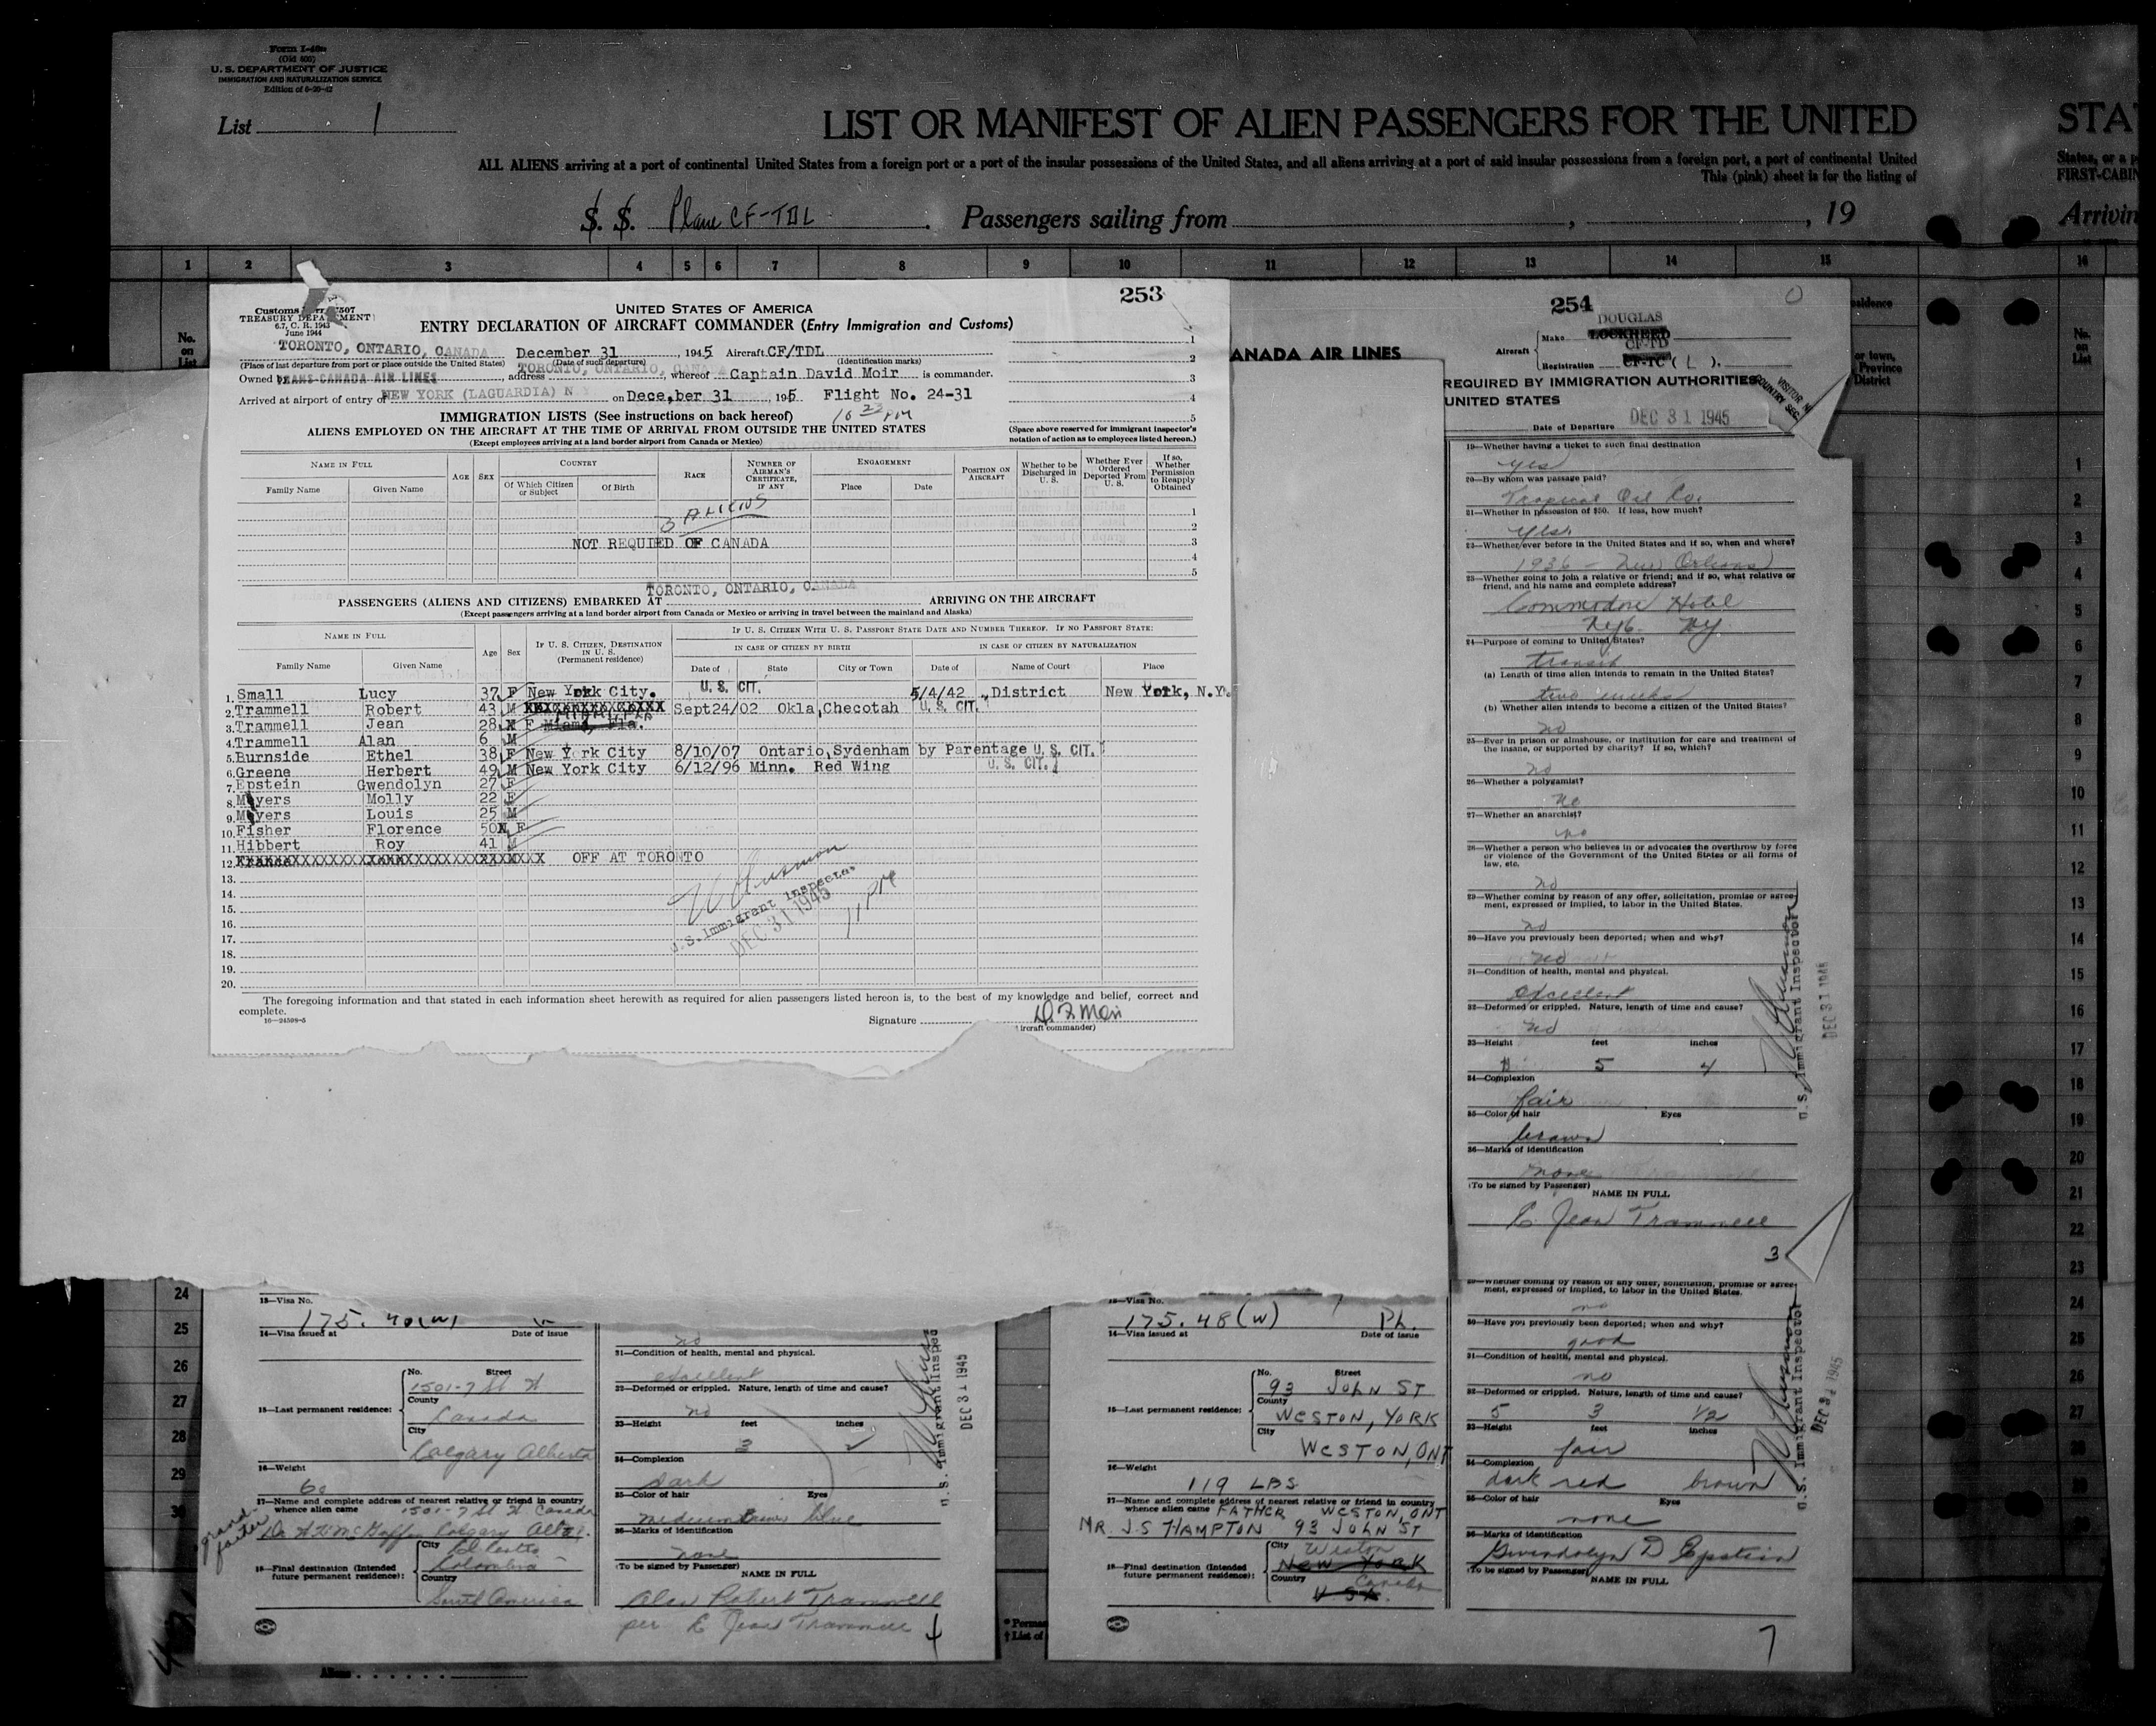 Form I-40
(Old 600)
U. S. DEPARTMENT OF JUSTICE
IMMIGRATION AND NATURALIZATION SERVICE
List 1
LIST OR MANIFEST OF ALIEN PASSENGERS FOR THE UNITED STA
ALL ALIENS arriving at a port of continental United States from a foreign port or a port of the insular possessions of the United States, and all aliens arriving at a port of said insular possessions from a foreign port, a port of continental United States, or a p
This (pink) sheet is for the listing of FIRST-CABIN
S. S. Plane CF-TDL. Passengers sailing from , , 19 Arrivin
1 2 3 4 5 6 7 8 9 10 11 12 13 14 15 16
No. on List
253
Customs 7507
TREASURY DEPARTMENT
6.7, C. R. 1943
June 1944
UNITED STATES OF AMERICA
ENTRY DECLARATION OF AIRCRAFT COMMANDER (Entry Immigration and Customs)
TORONTO, ONTARIO, CANADA December 31, 1945 Aircraft CF/TDL
(Place of last departure from port or place outside the United States) (Date of such departure) (Identification marks)
Owned by TRANS-CANADA AIR LINES, address TORONTO, ONTARIO, CANADA, whereof Captain David Moir is commander.
Arrived at airport of entry of NEW YORK (LAGUARDIA) N Y on Dece,ber 31 1945 Flight No. 24-31
10 22 PM
IMMIGRATION LISTS (See instructions on back hereof)
ALIENS EMPLOYED ON THE AIRCRAFT AT THE TIME OF ARRIVAL FROM OUTSIDE THE UNITED STATES
(Except employees arriving at a land border airport from Canada or Mexico)
1
2
3
4
5
(Space above reserved for immigrant inspector's notation of action as to employees listed hereon.)
NAME IN FULL AGE SEX COUNTRY RACE NUMBER OF AIRMAN'S CERTIFICATE, IF ANY ENGAGEMENT POSITION ON AIRCRAFT Whether to be Discharged in U. S. Whether Ever Ordered Deported From U. S. If so, Whether Permission to Reapply Obtained
Family Name Given Name Of Which Citizen or Subject Of Birth Place Date
3 ALIENS
NOT REQUIED OF CANADA
1
2
3
4
5
TORONTO, ONTARIO, CANADA
PASSENGERS (ALIENS AND CITIZENS) EMBARKED AT ARRIVING ON THE AIRCRAFT
(Except passengers arriving at a land border airport from Canada or Mexico or arriving in travel between the mainland and Alaska)
NAME IN FULL Age Sex IF U. S. CITIZEN, DESTINATION IN U. S. (Permanent residence) IF U. S. CITIZEN WITH U. S. PASSPORT STATE DATE AND NUMBER THEREOF. IF NO PASSPORT STATE:
IN CASE OF CITIZEN BY BIRTH IN CASE OF CITIZEN BY NATURALIZATION
Family Name Given Name Date of State City or Town Date of Name of Court Place
1. Small Lucy 37 F New York City. U. S. CIT. 5/4/42 District New York, N.Y.
2. Trammell Robert 43 M XXXXXXXXXXXXXXX Sept24/02 Okla Checotah U. S. CIT.
3. Trammell Jean 28 X F Miami, Fla.
4. Trammell Alan 6 M
5. Burnside Ethel 38 F New York City 8/10/07 Ontario Sydenham by Parentage U. S. CIT.
6. Greene Herbert 49 M New York City 6/12/96 Minn. Red Wing U. S. CIT.
7. Epstein Gwendolyn 27 F
8. Meyers Molly 22 F
9. Meyers Louis 25 M
10. Fisher Florence 50 F
11. Hibbert Roy 41 M
12. XXXXXXXXXXXXXXXXXXXXXXXXXXXXXX OFF AT TORONTO
13.
14.
15.
16.
17.
18.
19.
20.
U. S. Immigrant Inspector
DEC 31 1945
11 PM
The foregoing information and that stated in each information sheet herewith as required for alien passengers listed hereon is, to the best of my knowledge and belief, correct and complete.
16—24598-5
Signature D. F. Moir
(Aircraft commander)
254
ANADA AIR LINES
Aircraft Make DOUGLAS LOCKHEED
CF-TD
Registration CF-TC ( L ).
REQUIRED BY IMMIGRATION AUTHORITIES
UNITED STATES
Date of Departure DEC 31 1945
19—Whether having a ticket to such final destination
yes
20—By whom was passage paid?
Tropical Oil Co.
21—Whether in possession of $50. If less, how much?
Yes.
22—Whether ever before in the United States and if so, when and where?
1936 - New Orleans
23—Whether going to join a relative or friend; and if so, what relative or friend, and his name and complete address?
Commodore Hotel
NY
24—Purpose of coming to United States?
transit
(a) Length of time alien intends to remain in the United States?
two weeks
(b) Whether alien intends to become a citizen of the United States?
no
25—Ever in prison or almshouse, or institution for care and treatment of the insane, or supported by charity? If so, which?
no
26—Whether a polygamist?
no
27—Whether an anarchist?
no
28—Whether a person who believes in or advocates the overthrow by force or violence of the Government of the United States or all forms of law, etc.
no
29—Whether coming by reason of any offer, solicitation, promise or agreement, expressed or implied, to labor in the United States.
no
30—Have you previously been deported; when and why?
no
31—Condition of health, mental and physical.
excellent
32—Deformed or crippled. Nature, length of time and cause?
no
33—Height feet inches
5 4
34—Complexion
fair
35—Color of hair Eyes
brown
36—Marks of identification
none
(To be signed by Passenger) NAME IN FULL
E. Jean Trammell
3
U. S. Immigrant Inspector
DEC 31 1945
13—Visa No.
175. 40(w)
14—Visa issued at Date of issue
15—Last permanent residence:
No. Street
1501-7 St W
County
Canada
City
Calgary Alberta
16—Weight
60
17—Name and complete address of nearest relative or friend in country whence alien came
1501-7 St W Canada
Calgary Alta.
grand father
18—Final destination (Intended future permanent residence):
City
Colombia
Country
South America
no
31—Condition of health, mental and physical.
excellent
32—Deformed or crippled. Nature, length of time and cause?
no
33—Height feet inches
3
34—Complexion
dark
35—Color of hair Eyes
medium brown blue
36—Marks of identification
none
(To be signed by Passenger)
NAME IN FULL
Alan Robert Trammell
per E Jean Trammell
4
DEC 31 1945
13—Visa No.
175.48(w) Ph.
14—Visa issued at Date of issue
15—Last permanent residence:
No. Street
93 JOHN ST
County
WESTON, YORK
City
WESTON, ONT
16—Weight
119 LBS
17—Name and complete address of nearest relative or friend in country whence alien came
FATHER WESTON, ONT
MR J.S HAMPTON 93 JOHN ST
18—Final destination (Intended future permanent residence):
City Weston
NEW YORK
Country Canada
USA.
29—Whether coming by reason of any offer, solicitation, promise or agreement, expressed or implied, to labor in the United States.
no
30—Have you previously been deported; when and why?
good
31—Condition of health, mental and physical.
no
32—Deformed or crippled. Nature, length of time and cause?
5 3 1/2
33—Height feet inches
fair
34—Complexion
dark red brown
35—Color of hair Eyes
none
36—Marks of identification
Gwendolyn D Epstein
(To be signed by Passenger) NAME IN FULL
7
U. S. Immigrant Inspector
DEC 31 1945